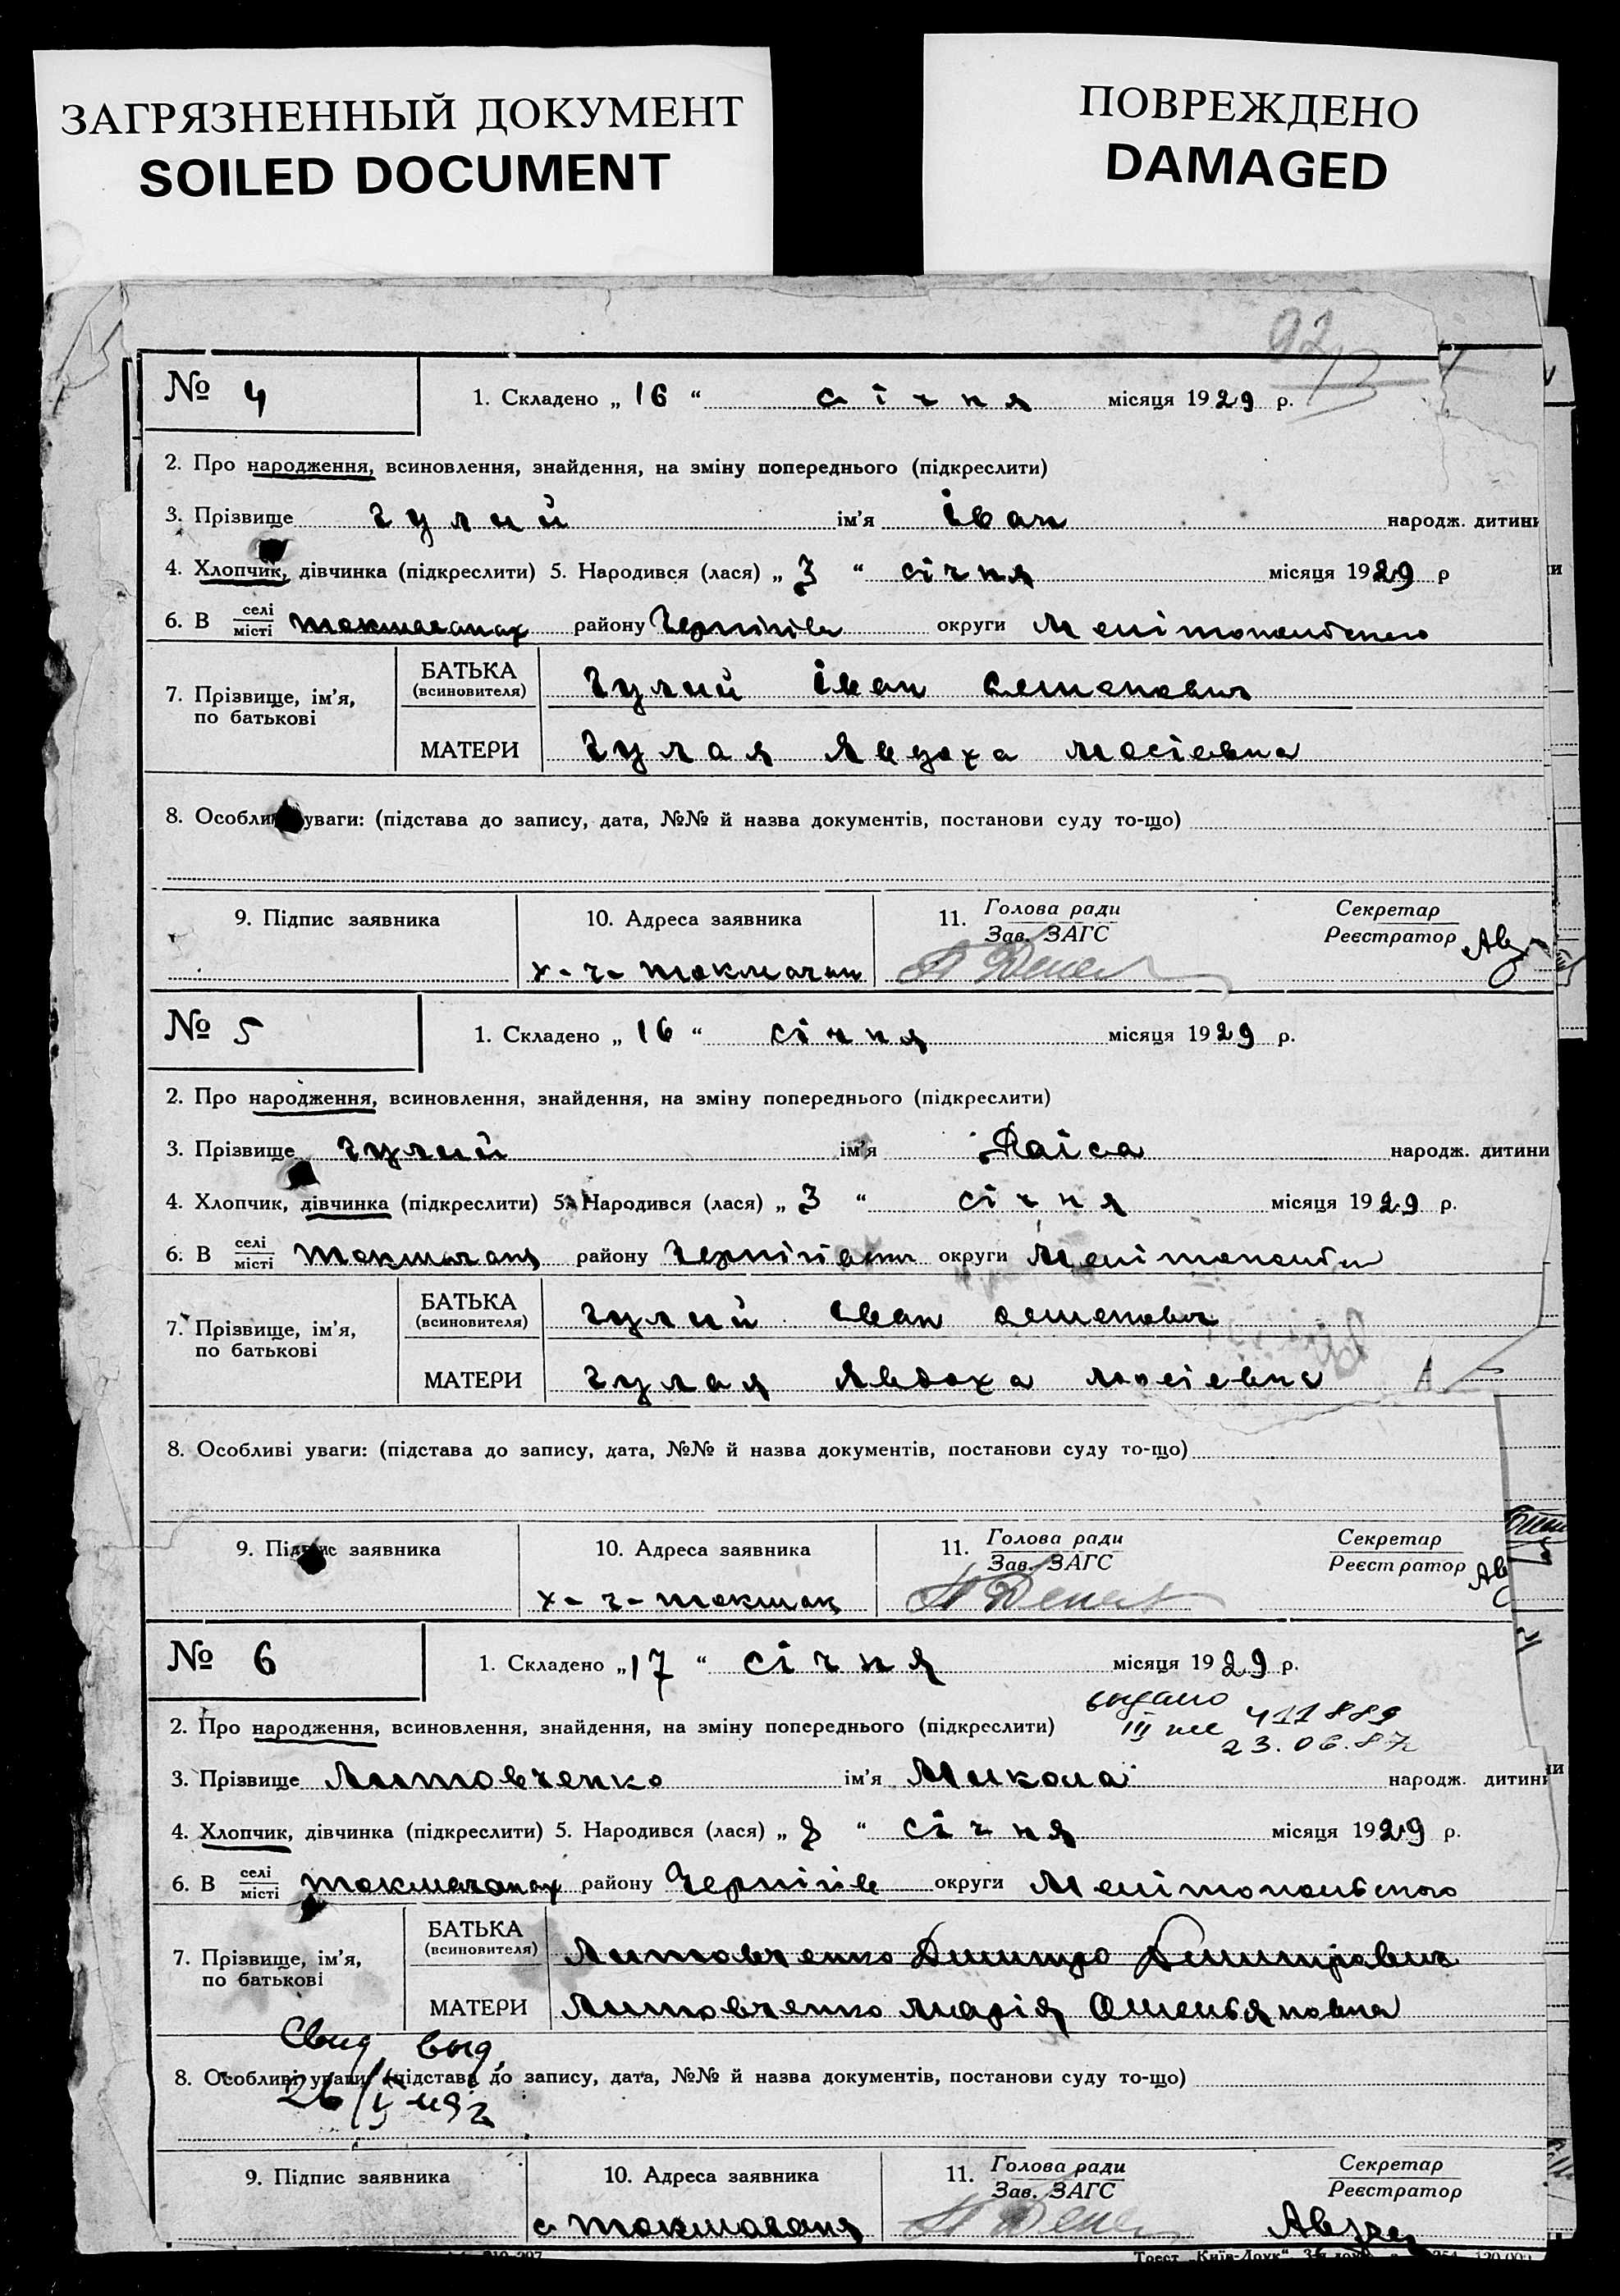 ЗАГРЯЗНЕННЫЙ ДОКУМЕНТ
SOILED DOCUMENT
ПОВРЕЖДЕНО
DAMAGED
92
13
№ 4
1. Складено „ 16 “ січня місяця 1929 р.
2. Про народження, всиновлення, знайдення, на зміну попереднього (підкреслити)
3. Прізвище Гулий ім'я Іван народж. дитини
4. Хлопчик, дівчинка (підкреслити) 5. Народився (лася) „ 3 “ січня місяця 1929 р
6. В селі місті Токмачанах району Чернігів округи Мелітопольського
7. Прізвище, ім'я, по батькові
БАТЬКА (всиновителя) Гулий Іван Семенович
МАТЕРИ Гулая Явдоха Мосіевна
8. Особли уваги: (підстава до запису, дата, №№ й назва документів, постанови суду то-що)
9. Підпис заявника 10. Адреса заявника 11. Голова ради Зав. ЗАГС Секретар Реєстратор
№ 5
1. Складено „ 16 “ січня місяця 1929 р.
2. Про народження, всиновлення, знайдення, на зміну попереднього (підкреслити)
3. Прізвище Гулий ім'я Раіса народж. дитини
4. Хлопчик, дівчинка (підкреслити) 5. Народився (лася) „ 3 “ січня місяця 1929 р.
6. В селі місті району округи
7. Прізвище, ім'я, по батькові
БАТЬКА (всиновителя) Гулий Іван Семенович
МАТЕРИ Гулая Явдоха Мосіевна
8. Особливі уваги: (підстава до запису, дата, №№ й назва документів, постанови суду то-що)
9. Підпис заявника 10. Адреса заявника 11. Голова ради Зав. ЗАГС Секретар Реєстратор
х-г-Токмач
№ 6
1. Складено „ 17 “ січня місяця 1929 р.
выдано
2. Про народження, всиновлення, знайдення, на зміну попереднього (підкреслити)
411889
23.06.87
3. Прізвище Литовченко ім'я Микола народж. дитини
4. Хлопчик, дівчинка (підкреслити) 5. Народився (лася) „ 8 “ січня місяця 1929 р.
6. В селі місті Токмачанах району Чернігів округи Мелітопольского
7. Прізвище, ім'я, по батькові
БАТЬКА (всиновителя) Литовченко Дмитро Дмитрович
МАТЕРИ Литовченко Марія Омельяновна
Свид выд.
8. Особливі уваги: (підстава до запису, дата, №№ й назва документів, постанови суду то-що)
9. Підпис заявника 10. Адреса заявника 11. Голова ради Зав. ЗАГС Секретар Реєстратор